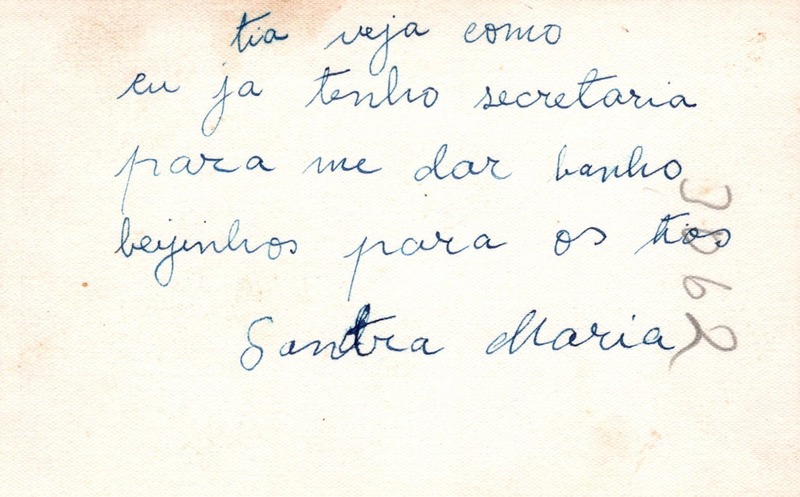 tia veja como
eu ja tenho secretaria
para me dar banho
beijinhos para os tios
Sandra Maria
3862